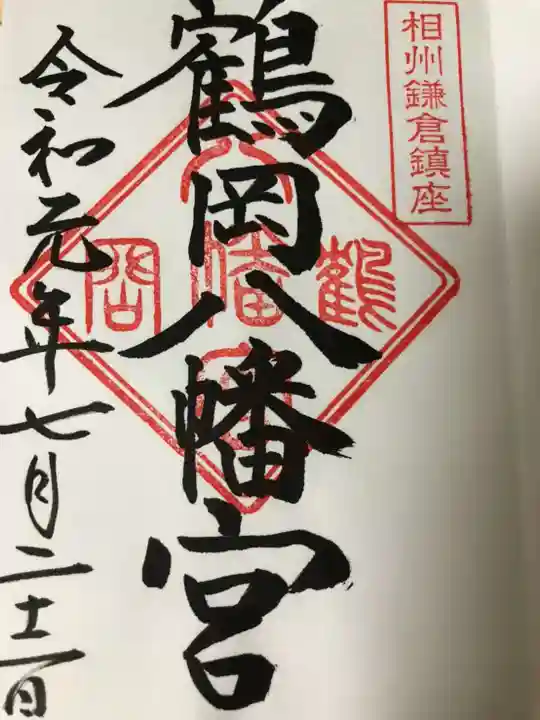 相州鎌倉鎮座
鶴岡八幡宮
令和元年七月二十一日